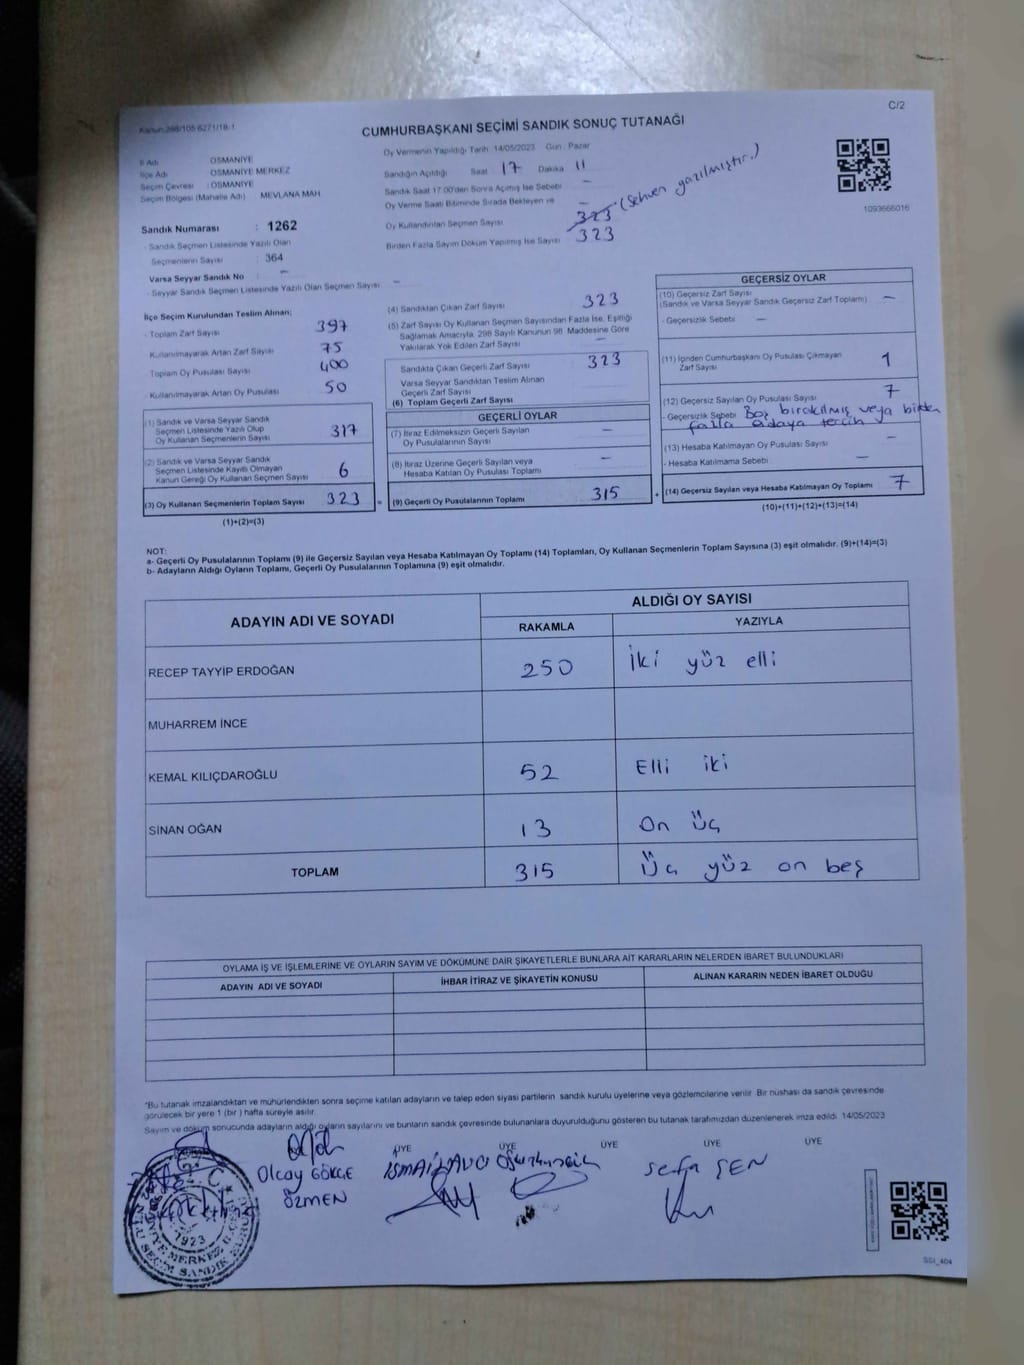 C/2
Kanun:298/105 6271/18-1
CUMHURBAŞKANI SEÇİMİ SANDIK SONUÇ TUTANAĞI
İl Adı OSMANİYE
İlçe Adı OSMANİYE MERKEZ
Seçim Çevresi : OSMANİYE
Seçim Bölgesi (Mahalle Adı) MEVLANA MAH
Sandık Numarası : 1262
- Sandık Seçmen Listesinde Yazılı Olan
Seçmenlerin Sayısı : 364
Varsa Seyyar Sandık No : -
- Seyyar Sandık Seçmen Listesinde Yazılı Olan Seçmen Sayısı -
Oy Vermenin Yapıldığı Tarih 14/05/2023 Gün : Pazar
Sandığın Açıldığı Saat 17 Dakika 11
Sandık Saat 17:00'den Sonra Açılmış İse Sebebi -
Oy Verme Saati Bitiminde Sırada Bekleyen ve -
Oy Kullandırılan Seçmen Sayısı 323 (Sehven yazılmıştır.)
Birden Fazla Sayım Döküm Yapılmış İse Sayısı 323
1093666016
İlçe Seçim Kurulundan Teslim Alınan;
- Toplam Zarf Sayısı 397
Kullanılmayarak Artan Zarf Sayısı 75
Toplam Oy Pusulası Sayısı 400
- Kullanılmayarak Artan Oy Pusulası 50
(1) Sandık ve Varsa Seyyar Sandık
Seçmen Listesinde Yazılı Olup
Oy Kullanan Seçmenlerin Sayısı 317
(2) Sandık ve Varsa Seyyar Sandık
Seçmen Listesinde Kayıtlı Olmayan
Kanun Gereği Oy Kullanan Seçmen Sayısı 6
(3) Oy Kullanan Seçmenlerin Toplam Sayısı 323 =
(1)+(2)=(3)
(4) Sandıktan Çıkan Zarf Sayısı 323
(5) Zarf Sayısı Oy Kullanan Seçmen Sayısından Fazla İse, Eşitliği
Sağlamak Amacıyla, 298 Sayılı Kanunun 98. Maddesine Göre
Yakılarak Yok Edilen Zarf Sayısı -
Sandıkta Çıkan Geçerli Zarf Sayısı 323
Varsa Seyyar Sandıktan Teslim Alınan
Geçerli Zarf Sayısı
(6) Toplam Geçerli Zarf Sayısı
GEÇERLİ OYLAR
(7) İtiraz Edilmeksizin Geçerli Sayılan
Oy Pusulalarının Sayısı -
(8) İtiraz Üzerine Geçerli Sayılan veya
Hesaba Katılan Oy Pusulası Toplamı -
(9) Geçerli Oy Pusulalarının Toplamı 315 +
GEÇERSİZ OYLAR
(10) Geçersiz Zarf Sayısı
(Sandık ve Varsa Seyyar Sandık Geçersiz Zarf Toplamı) -
- Geçersizlik Sebebi -
(11) İçinden Cumhurbaşkanı Oy Pusulası Çıkmayan
Zarf Sayısı 1
(12) Geçersiz Sayılan Oy Pusulası Sayısı 7
- Geçersizlik Sebebi Boş bırakılmış veya birden
fazla adaya tercih
(13) Hesaba Katılmayan Oy Pusulası Sayısı -
- Hesaba Katılmama Sebebi -
(14) Geçersiz Sayılan veya Hesaba Katılmayan Oy Toplamı 7
(10)+(11)+(12)+(13)=(14)
NOT:
a- Geçerli Oy Pusulalarının Toplamı (9) ile Geçersiz Sayılan veya Hesaba Katılmayan Oy Toplamı (14) Toplamları, Oy Kullanan Seçmenlerin Toplam Sayısına (3) eşit olmalıdır. (9)+(14)=(3)
b- Adayların Aldığı Oyların Toplamı, Geçerli Oy Pusulalarının Toplamına (9) eşit olmalıdır.
ADAYIN ADI VE SOYADI ALDIĞI OY SAYISI
RAKAMLA YAZIYLA
RECEP TAYYİP ERDOĞAN 250 İki yüz elli
MUHARREM İNCE
KEMAL KILIÇDAROĞLU 52 Elli iki
SİNAN OĞAN 13 On üç
TOPLAM 315 Üç yüz on beş
OYLAMA İŞ VE İŞLEMLERİNE VE OYLARIN SAYIM VE DÖKÜMÜNE DAİR ŞİKAYETLERLE BUNLARA AİT KARARLARIN NELERDEN İBARET BULUNDUKLARI
ADAYIN ADI VE SOYADI İHBAR İTİRAZ VE ŞİKAYETİN KONUSU ALINAN KARARIN NEDEN İBARET OLDUĞU
*Bu tutanak imzalandıktan ve mühürlendikten sonra seçime katılan adayların ve talep eden siyasi partilerin sandık kurulu üyelerine veya gözlemcilerine verilir. Bir nüshası da sandık çevresinde
görülecek bir yere 1 (bir) hafta süreyle asılır.
Sayım ve döküm sonucunda adayların aldığı oyların sayılarını ve bunların sandık çevresinde bulunanlara duyurulduğunu gösteren bu tutanak tarafımızdan düzenlenerek imza edildi. 14/05/2023
ÜYE ÜYE ÜYE ÜYE ÜYE
Olcay GÖKÇE
ÖZMEN
İSMAİL AVCI
Sefa ŞEN
1923
SSI_404